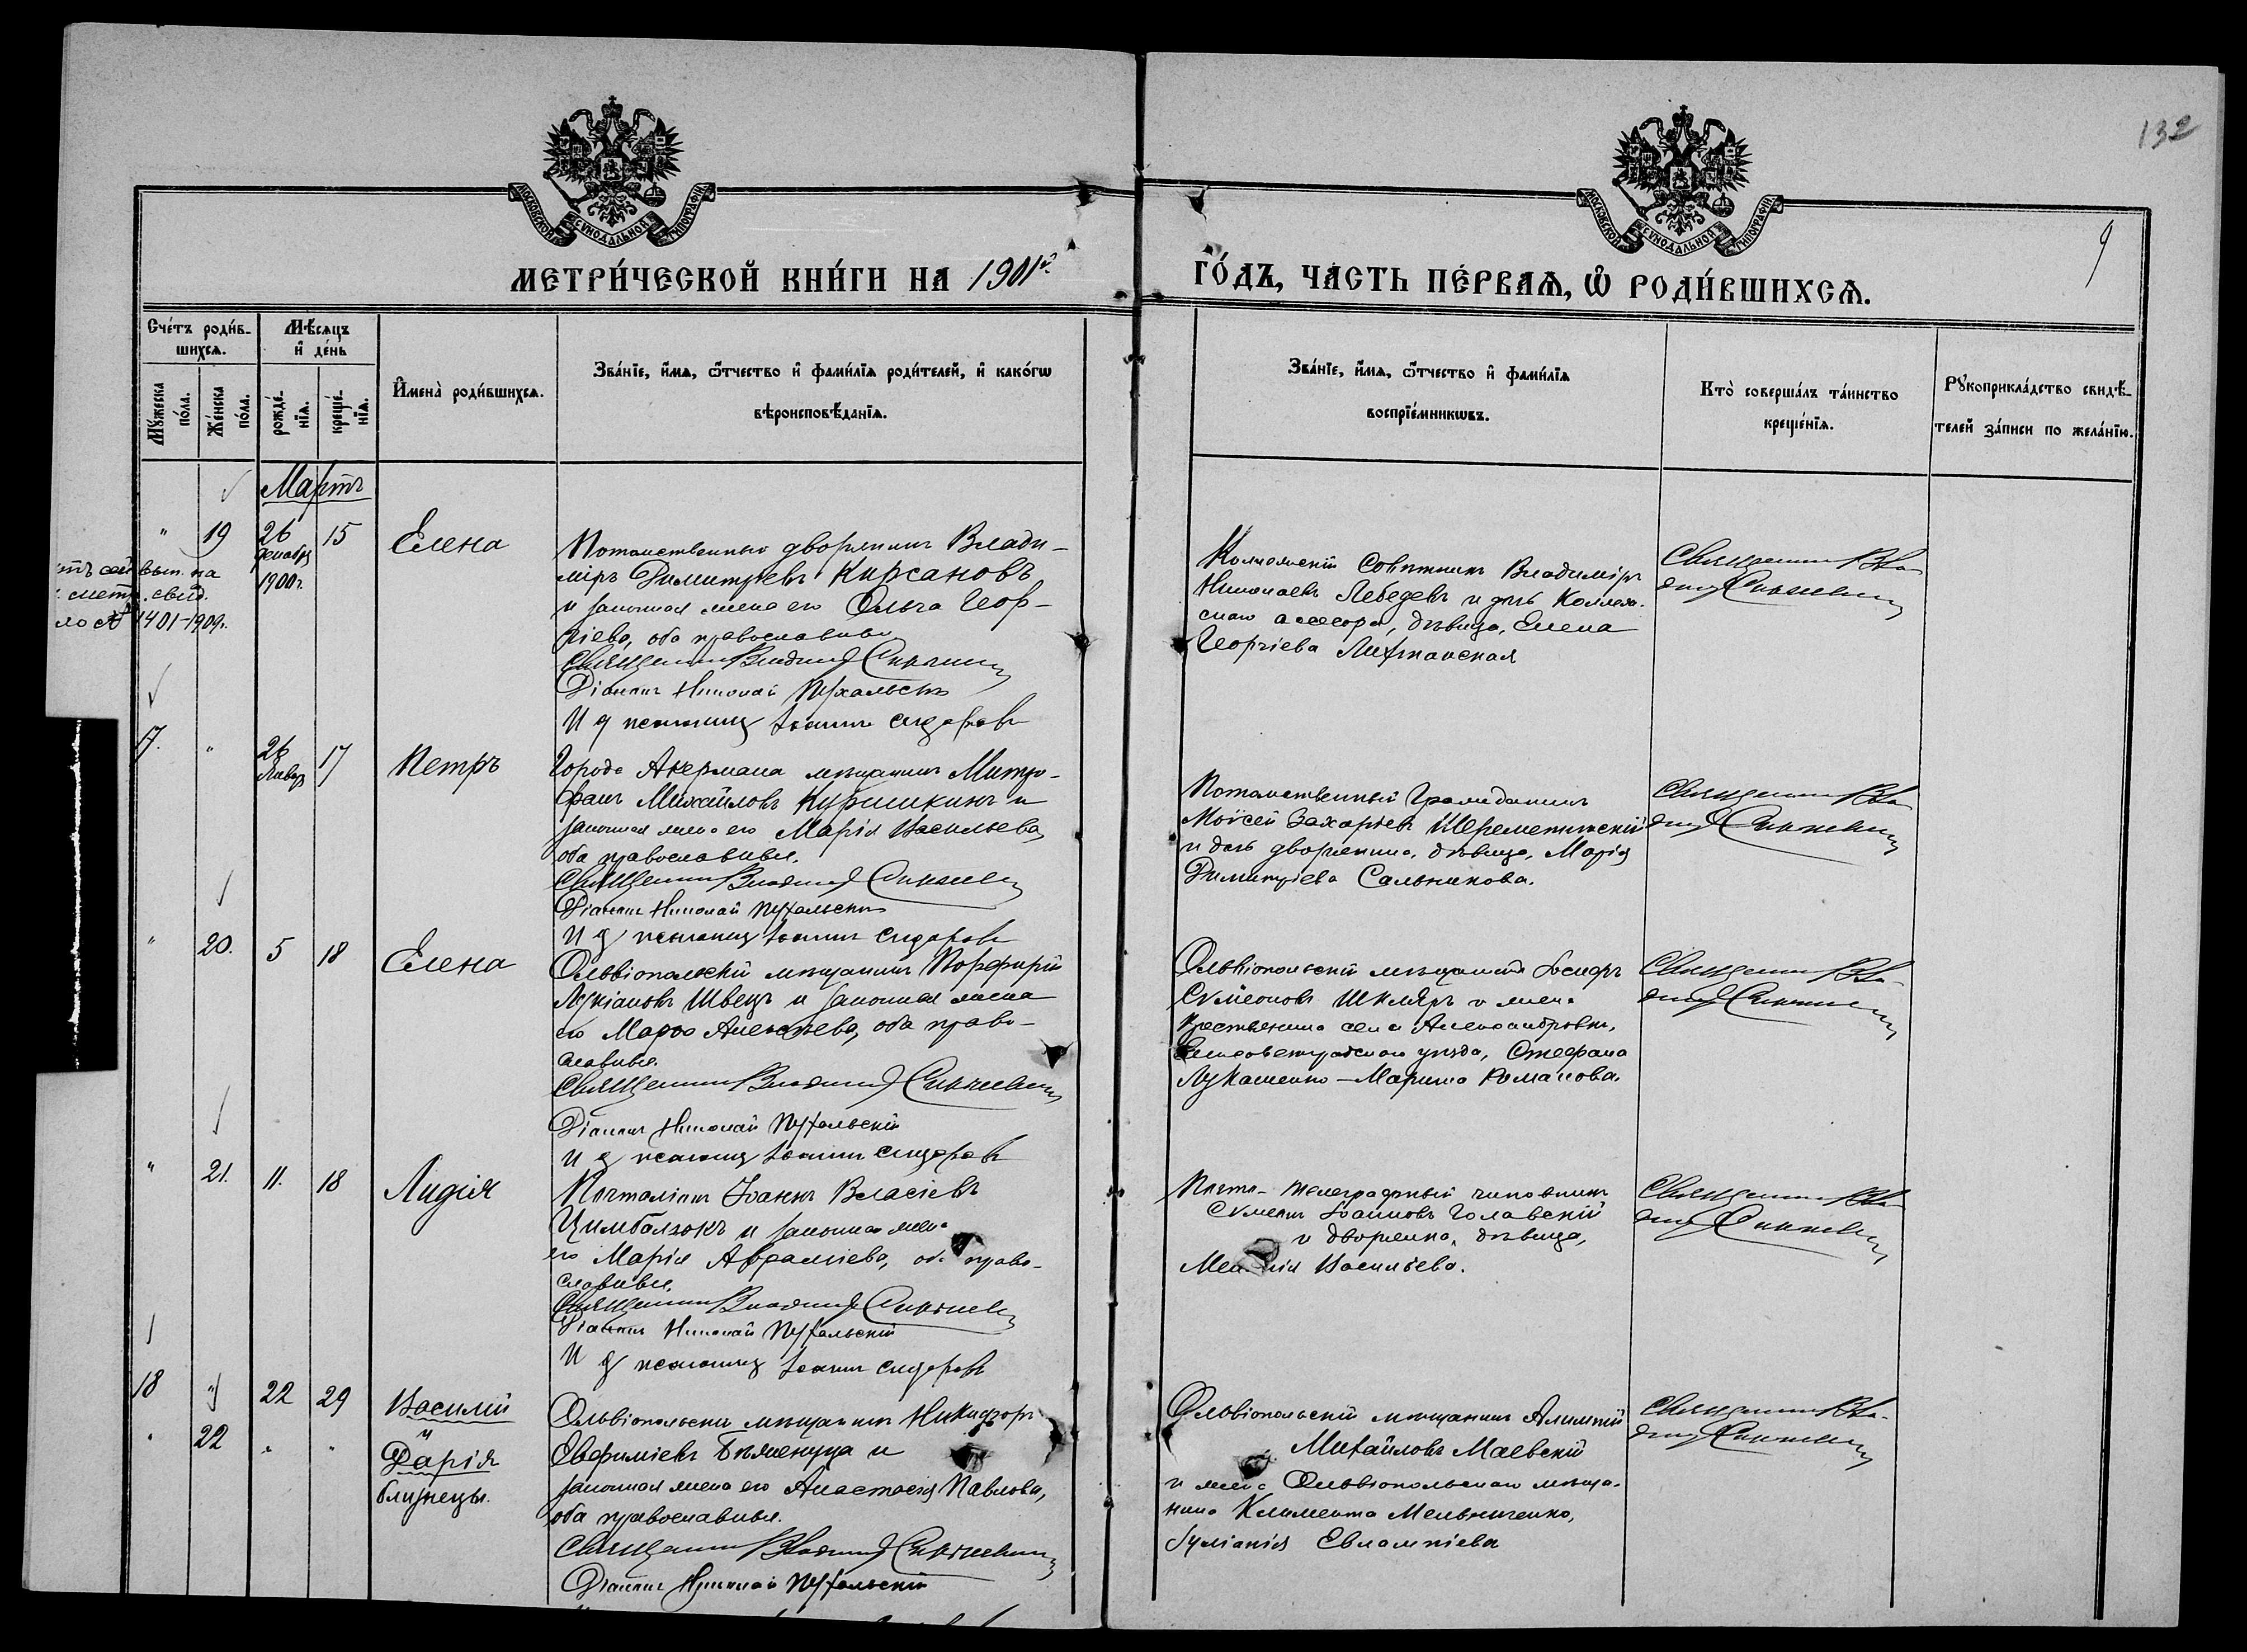 132
9
МОСКОВСКОЙ СѴНОДАЛЬНОЙ ТИПОГРАФІИ
МОСКОВСКОЙ СѴНОДАЛЬНОЙ ТИПОГРАФІИ
МЕТРИ́ЧЕСКОЙ КНИ́ГИ НА 1901й
ГО́ДЪ, ЧА́СТЬ ПЕ́РВАѦ, Ѿ РОДИ́ВШИХСѦ.
Сче́тъ роди́в-
шихсѧ.
Мѣ́сѧцъ
и҆ де́нь
Мꙋ́жеска
по́ла.
Же́нска
по́ла.
рожде́-
нїѧ.
креще́-
нїѧ.
И҆мена̀ роди́вшихсѧ.
Зва́нїе, и҆́мѧ, ѻ҆́тчество и҆ фами́лїѧ роди́телей, и҆ како́гѡ
вѣроисповѣ́данїѧ.
Зва́нїе, и҆́мѧ, ѻ҆́тчество и҆ фами́лїѧ
воспрїе́мникѡвъ.
Кто̀ соверша́лъ та́инство
креще́нїѧ.
Рꙋкоприкла́дство свидѣ́-
телей за́писи по жела́нїю.
Мартъ
" 19 26 декабр 1900г. 15 Елена
вып. на
метр. свид.
№ 1401-1909г.
Потомственный дворянинъ Влади-
міръ Димитріевъ Кирсановъ
и законная жена его Ольга Геор-
гіева, оба православные
Священникъ Владимір
Діаконъ Николай Пухальскій
И д псаломщ Іоаннъ Сидоровъ
Коллежскій Совѣтникъ Владиміръ
Николаевъ Лебедевъ и дочь Коллеж-
скаго ассесора, дѣвица, Елена
Георгіева
Священникъ Вла-
димір
17. " 26 Январ 17 Петръ
Города Акермана мѣщанинъ Митро-
фанъ Михайловъ Куришкинъ и
законная жена его Марія Васильева,
оба православные.
Священникъ Владимір
Діаконъ Николай Пухальскій
И д псаломщ Іоаннъ Сидоровъ
Потомственный Гражданинъ
Моѵсей Захаріевъ
и дочь дворянина, дѣвица, Марія
Димитріева Сальникова.
Священникъ Вла-
димір
" 20. 5 18 Елена
Ольвіопольскій мѣщанинъ Порфирій
Лукіановъ Швецъ и законная жена
его Марѳа Алексѣева, оба право-
славные.
Священникъ Владимір
Діаконъ Николай Пухальскій
И д псаломщ Іоаннъ Сидоровъ
Ольвіопольскій мѣщанинъ Іосифъ
Сѵмеоновъ Шкляръ и жена
крестьянина села Александровки,
Елисаветградскаго уѣзда, Стефана
Лукашенко – Марина Романова.
Священникъ Вла-
димір
" 21. 11. 18 Лидія
Почталіонъ Іоаннъ Власіевъ
Цимбалюкъ и законная жена
его Марія Авраміева, оба право-
славные.
Священникъ Владимір
Діаконъ Николай Пухальскій
И д псаломщ Іоаннъ Сидоровъ
Почто-телеграфный чиновникъ
Сѵмеонъ Іоанновъ Голавскій
и дворянка, дѣвица,
Васильева.
Священникъ Вла-
димір
18 " 22 29 Василій
и
" 22 " " Дарія
близнецы.
Ольвіопольскій мѣщанинъ Никифоръ
Евфиміевъ и
законная жена его Анастасія Павлова,
оба православные.
Священникъ Владимір
Діаконъ Николай Пухальскій
Ольвіопольскій мѣщанинъ Алимпій
Михайловъ Маевскій
и жена Ольвіопольскаго мѣща-
нина Климента Мельниченко,
Іуліанія Евлампіева
Священникъ Вла-
димір